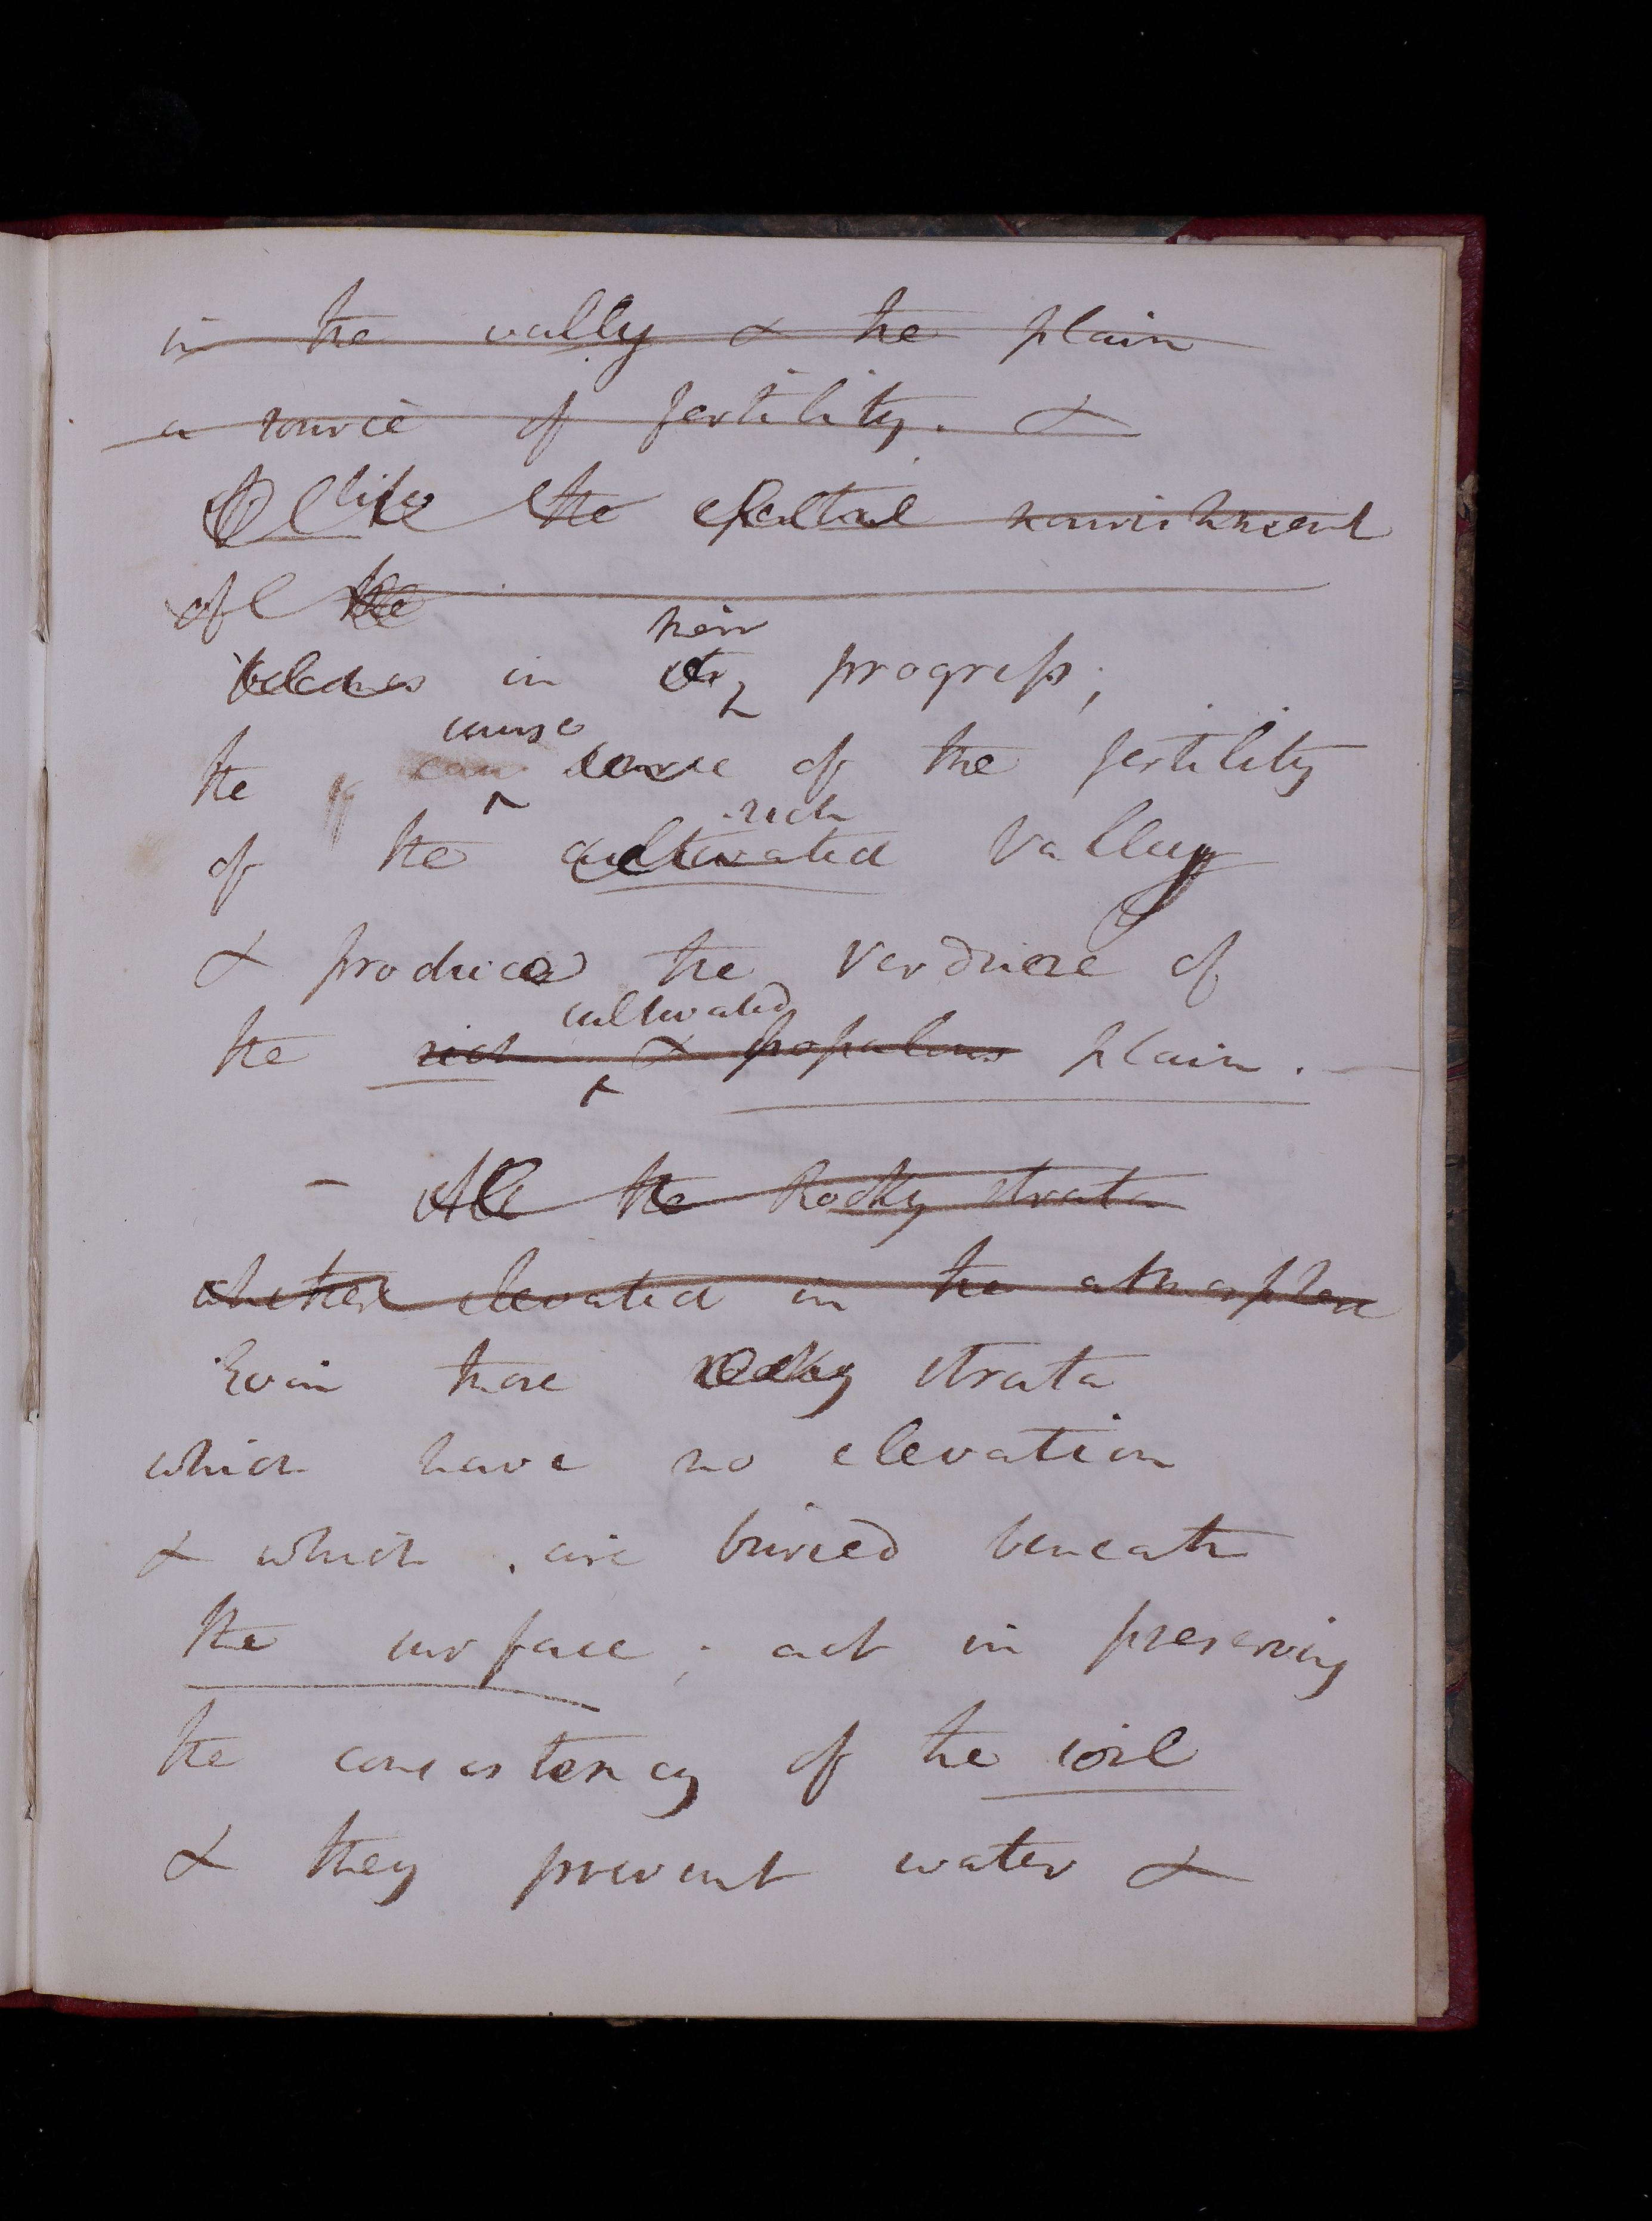 in the vally & the plain
a source of fertility. &
like the nourishment
of the
their
in progress;
cause
the of the fertility
rich
of the cultivated Valley
& produce the Verdure of
cultivated
the rich & populous plain.
- All the Rocky strata
whether elevated in the atmosphere
Even those rocky strata
which have no elevation
& which are buried beneath
the surface; act in preserving
the consistency of the soil
& they prevent water &